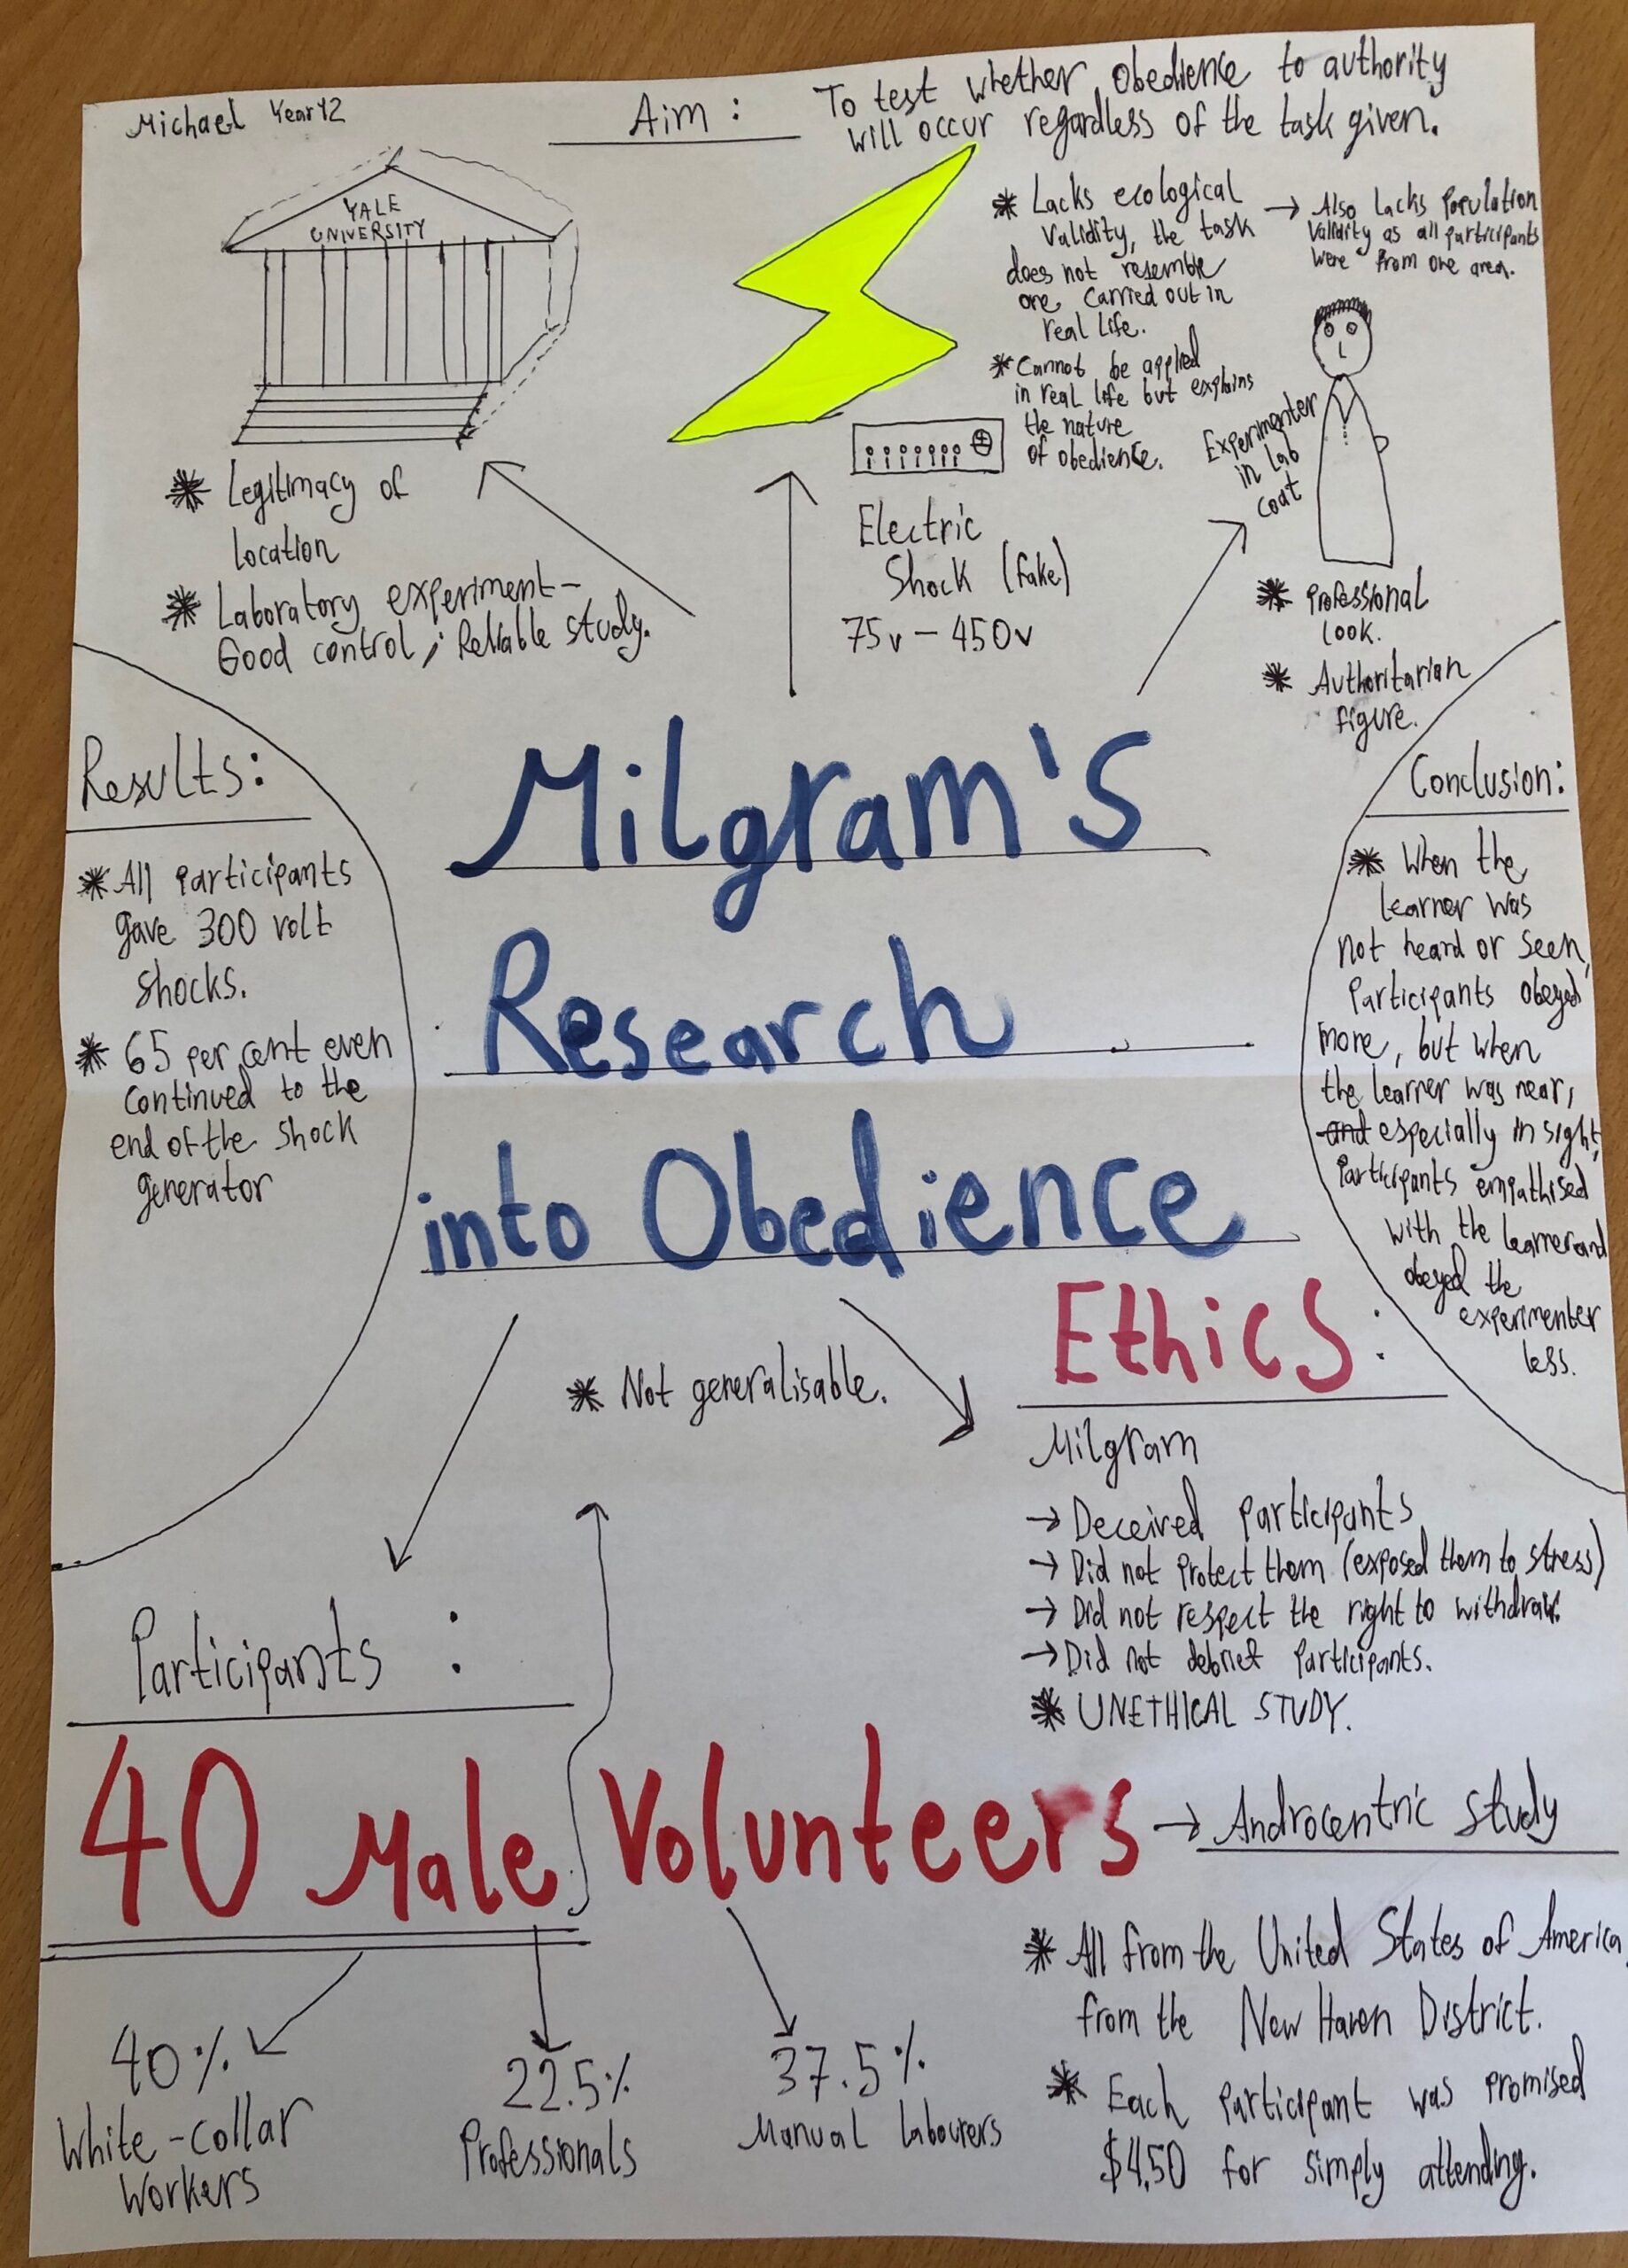 Michael Year 12
Aim :
To test whether obedience to authority
will occur regardless of the task given.
YALE
UNIVERSITY
* Legitimacy of
location
* Laboratory experiment -
Good control ; Reliable study.
Electric
Shock (fake)
75v - 450v
* Lacks ecological
validity, the task
does not resemble
one carried out in
real life.
* Cannot be applied
in real life but explains
the nature
of obedience.
→ Also lacks population
validity as all participants
were from one area.
Experimenter
in Lab
coat
* Professional
look.
* Authoritarian
figure.
Milgram's
Research
into Obedience
Results:
* All participants
gave 300 volt
shocks.
* 65 per cent even
continued to the
end of the shock
generator
Conclusion:
* When the
learner was
not heard or seen,
participants obeyed
more, but when
the learner was near,
and especially in sight,
participants empathised
with the learner and
obeyed the
experimenter
less.
* Not generalisable.
Ethics:
Milgram
→ Deceived participants
→ Did not protect them (exposed them to stress)
→ Did not respect the right to withdraw.
→ Did not debrief participants.
* UNETHICAL STUDY.
Participants :
40 Male Volunteers → Androcentric study
40%
White-collar
Workers
22.5%
Professionals
37.5%
Manual labourers
* All from the United States of America,
from the New Haven District.
* Each participant was promised
$4.50 for simply attending.